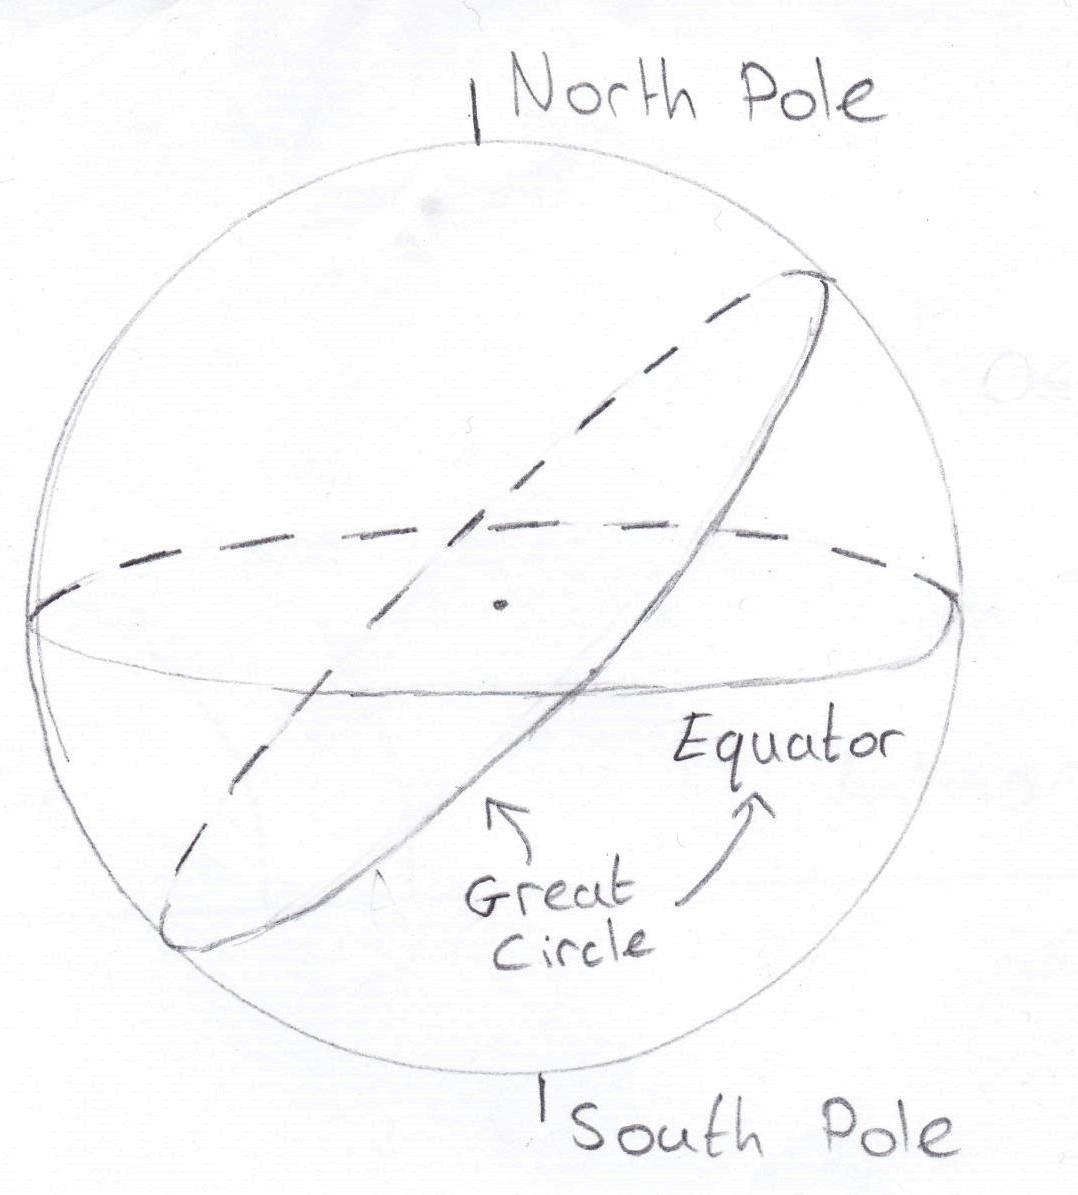 North Pole
Equator
Great
Circle
South Pole